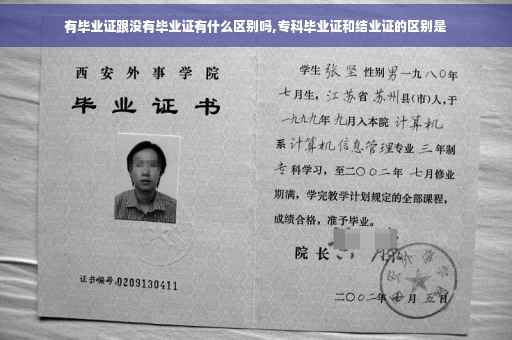 有毕业证跟没有毕业证有什么区别吗,专科毕业证和结业证的区别是
西安外事学院
毕业证书
证书编号:0209130411
学生 张坚 性别 男 一九八〇年
七月生, 江苏省 苏州 县(市)人,于
一九九九年 九月入本院 计算机
系 计算机信息管理 专业 三 年制
专 科学习, 至二〇〇二年 七月修业
期满, 学完教学计划规定的全部课程,
成绩合格, 准予毕业。
院长
二〇〇二年 七 月 五 日